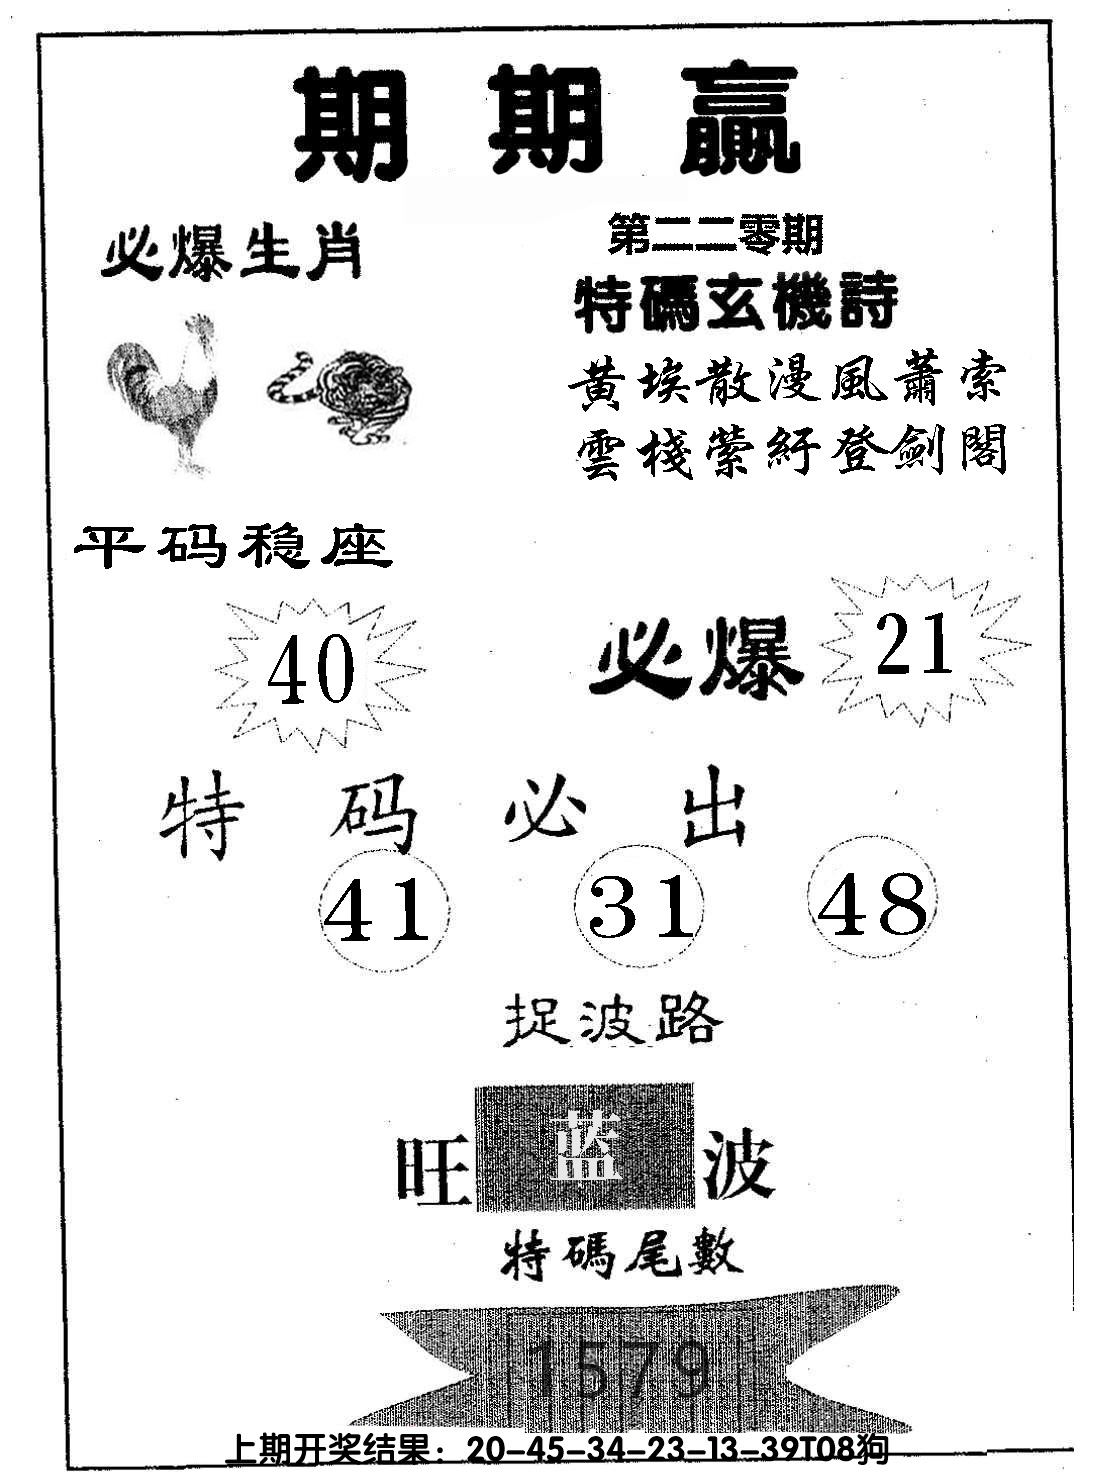 期期贏
必爆生肖
第二二零期
特碼玄機詩
黄埃散漫風蕭索
雲棧縈紆登劍閣
平码稳座
40
必爆 21
特码必出
41 31 48
捉波路
旺蓝波
特碼尾數
1579
上期开奖结果：20-45-34-23-13-39T08狗